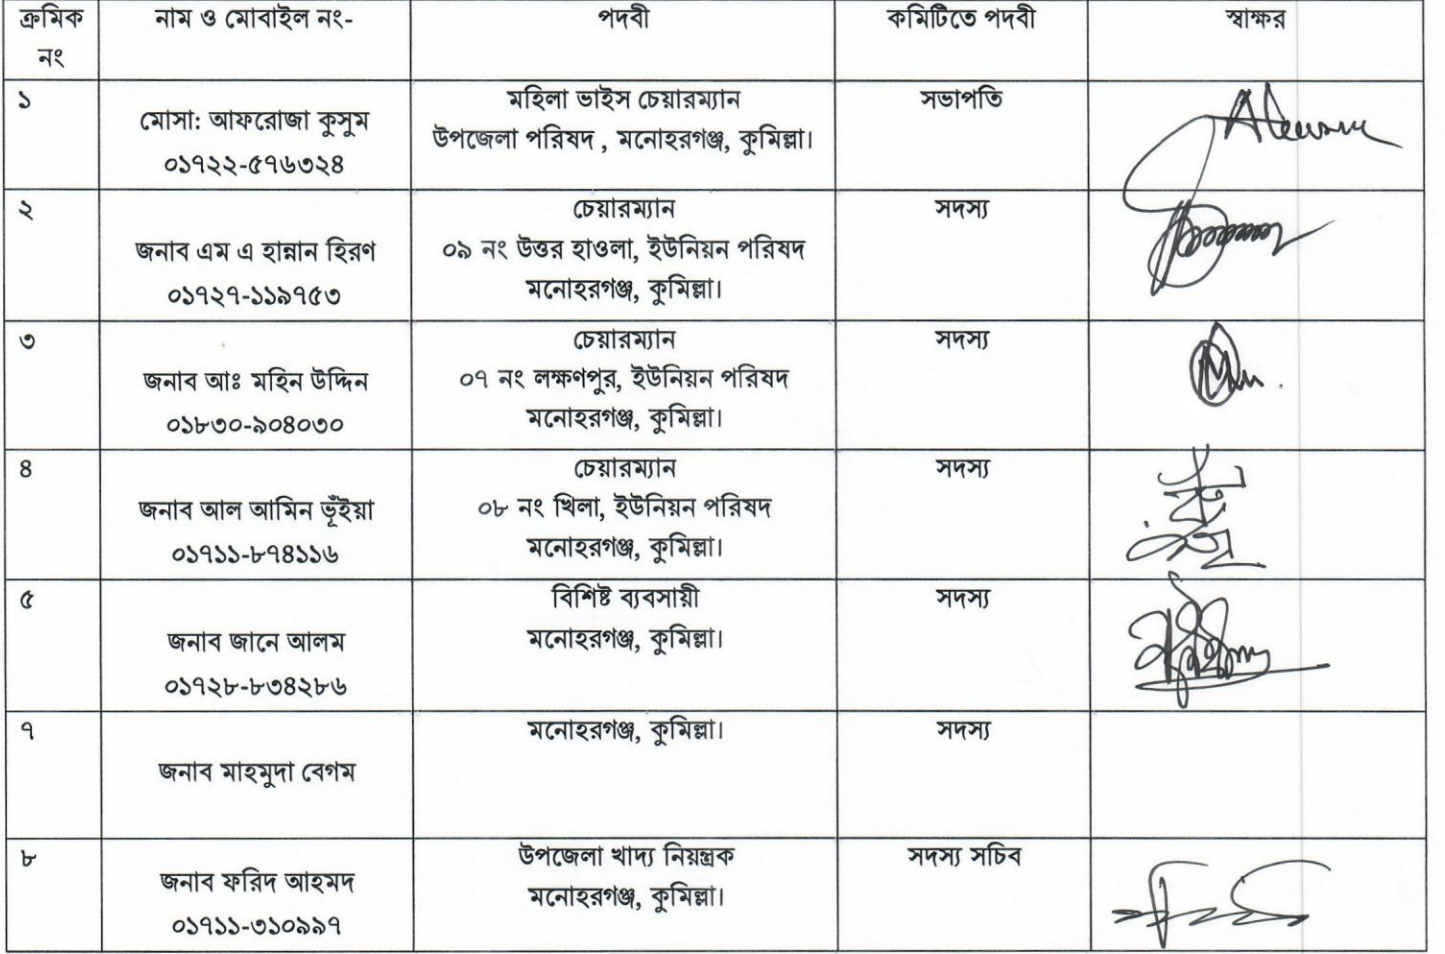 ক্রমিক নং	নাম ও মোবাইল নং-	পদবী	কমিটিতে পদবী	স্বাক্ষর
১	মোসা: আফরোজা কুসুম
০১৭২২-৫৭৬৩২৪	মহিলা ভাইস চেয়ারম্যান
উপজেলা পরিষদ , মনোহরগঞ্জ, কুমিল্লা।	সভাপতি
২	জনাব এম এ হান্নান হিরণ
০১৭২৭-১১৯৭৫৩	চেয়ারম্যান
০৯ নং উত্তর হাওলা, ইউনিয়ন পরিষদ
মনোহরগঞ্জ, কুমিল্লা।	সদস্য
৩	জনাব আঃ মহিন উদ্দিন
০১৮৩০-৯০৪০৩০	চেয়ারম্যান
০৭ নং লক্ষণপুর, ইউনিয়ন পরিষদ
মনোহরগঞ্জ, কুমিল্লা।	সদস্য
৪	জনাব আল আমিন ভূঁইয়া
০১৭১১-৮৭৪১১৬	চেয়ারম্যান
০৮ নং খিলা, ইউনিয়ন পরিষদ
মনোহরগঞ্জ, কুমিল্লা।	সদস্য
৫	জনাব জানে আলম
০১৭২৮-৮৩৪২৮৬	বিশিষ্ট ব্যবসায়ী
মনোহরগঞ্জ, কুমিল্লা।	সদস্য
৭	জনাব মাহমুদা বেগম	মনোহরগঞ্জ, কুমিল্লা।	সদস্য
৮	জনাব ফরিদ আহমদ
০১৭১১-৩১০৯৯৭	উপজেলা খাদ্য নিয়ন্ত্রক
মনোহরগঞ্জ, কুমিল্লা।	সদস্য সচিব